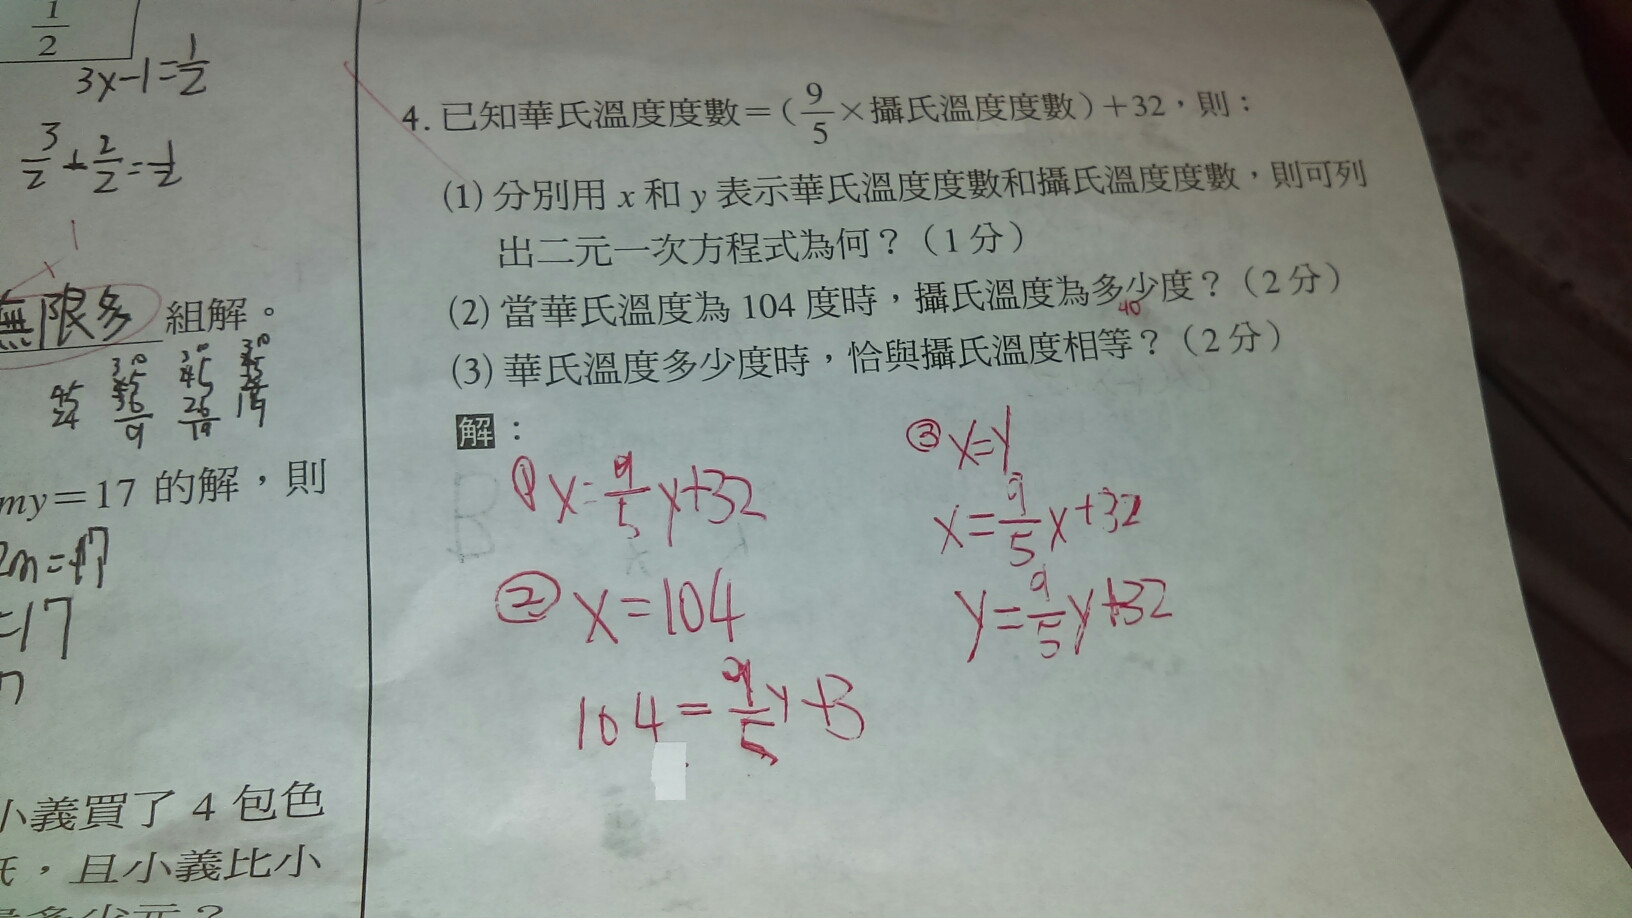 1/2
3x-1=1/2
3/2+2/2=1/2
無限多 組解。
45
24
my=17 的解,則
2m=17
=17
小義買了 4 包色
,且小義比小
多少元?
4. 已知華氏溫度度數=(9/5×攝氏溫度度數)+32,則:
(1) 分別用 x 和 y 表示華氏溫度度數和攝氏溫度度數,則可列
出二元一次方程式為何?(1 分)
(2) 當華氏溫度為 104 度時,攝氏溫度為多少度?(2 分)
40
(3) 華氏溫度多少度時,恰與攝氏溫度相等?(2 分)
解:
① x=9/5y+32
② x=104
104=9/5y+3
③ x=y
x=9/5x+32
y=9/5y+32